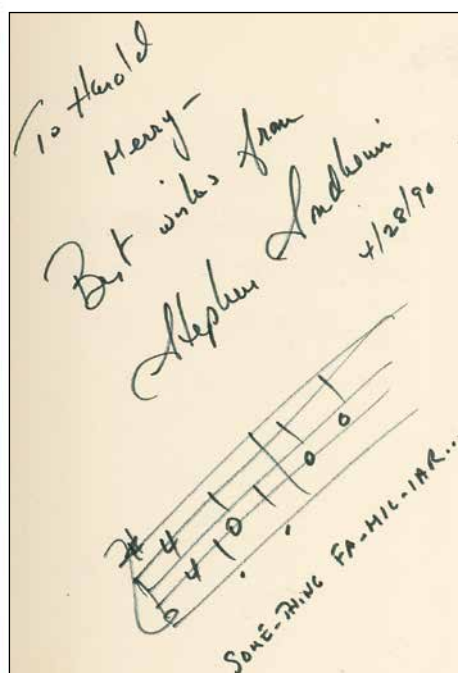 To Harold
Merry-
Best wishes from
Stephen Sondheim
4/28/90
4
4
SOME-THING FA-MIL-IAR...